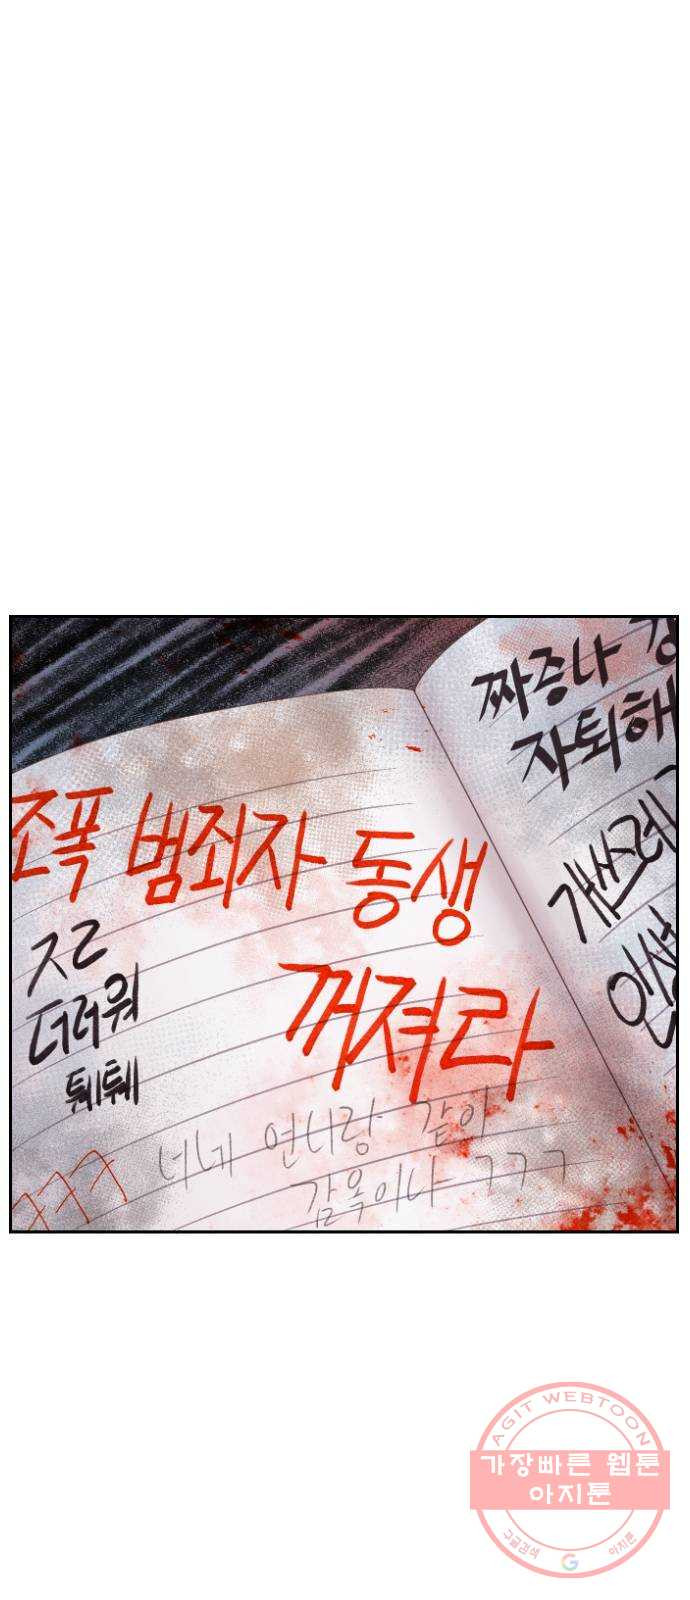 조폭 범죄자 동생
꺼져라
ㅈㄹ
더러워
퉤퉤
ㅋㅋㅋ
너네 언니랑 같이
감옥이나 ㄱㄱㄱ
짜증나
자퇴해
개쓰레
인생
AGIT WEBTOON
가장빠른 웹툰
아지툰
구글검색
아지툰